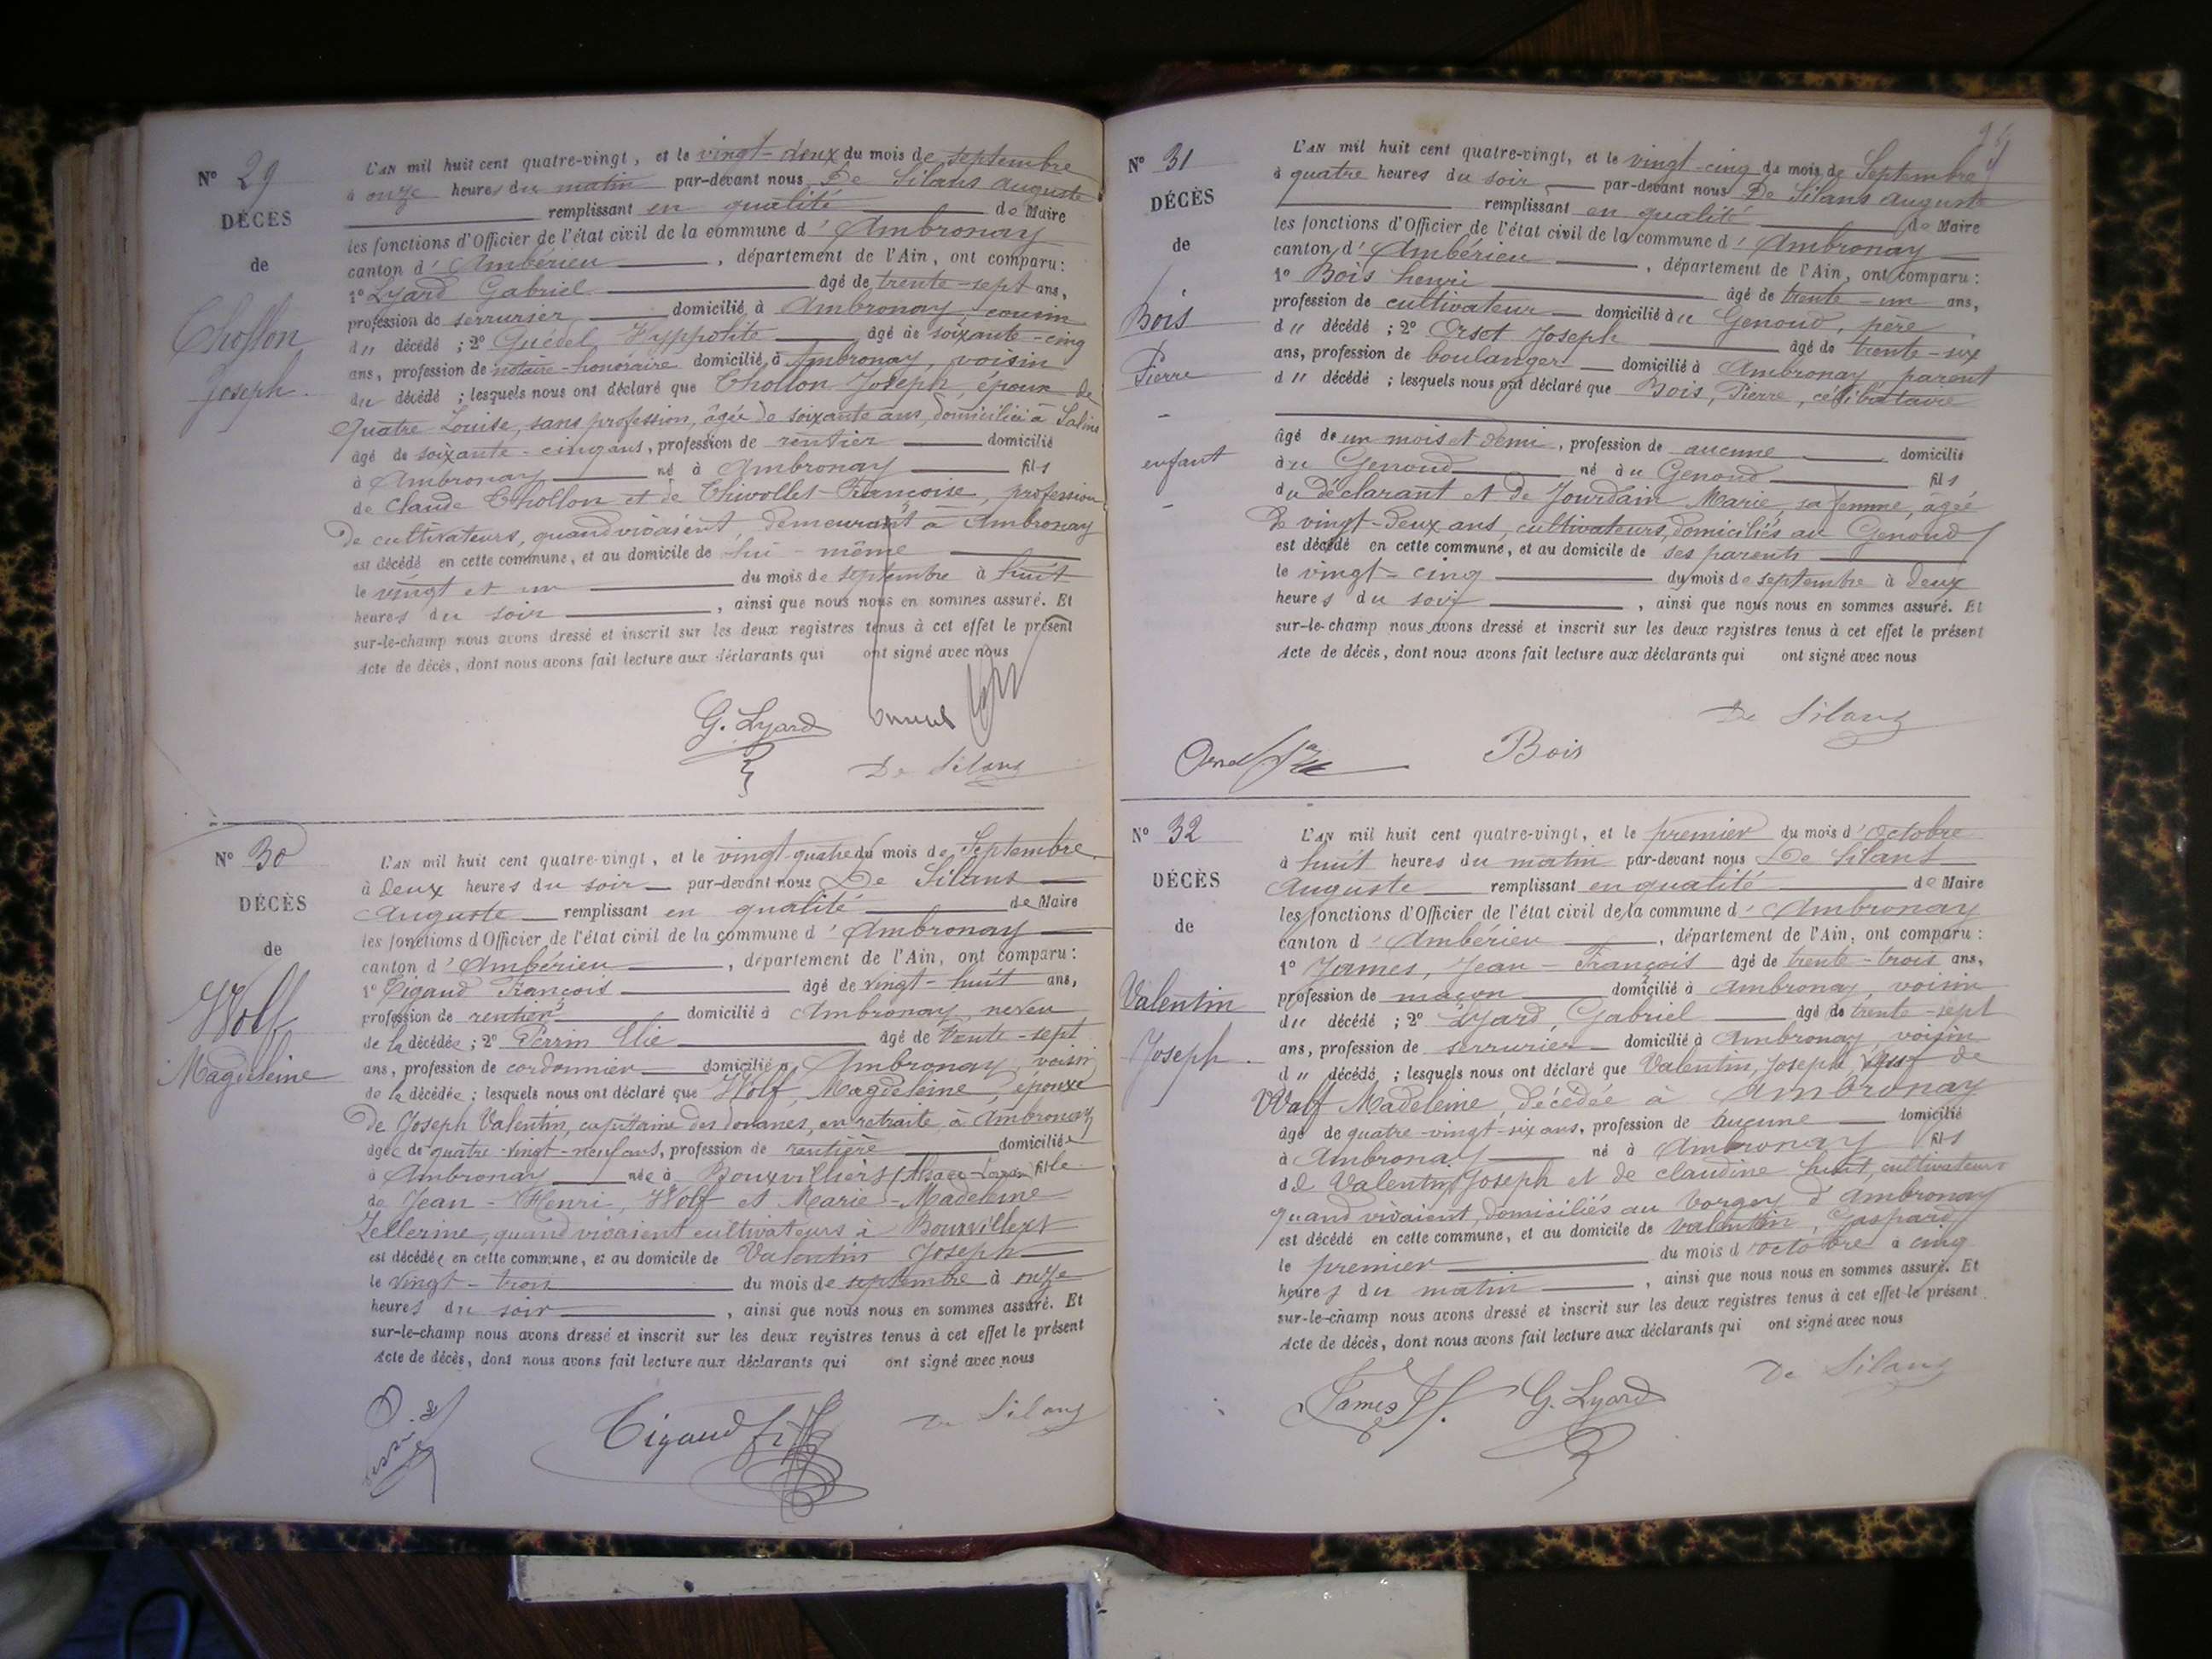 N° 29
DÉCES
de
Chollon
Joseph
L'AN mil huit cent quatre-vingt, et le vingt-deux du mois de septembre
à onze heures du matin par-devant nous De Silans auguste
remplissant en qualité de Maire
les fonctions d'Officier de l'état civil de la commune d'Ambronay
canton d'Ambérieu, département de l'Ain, ont comparu:
1° Lyard Gabriel âgé de trente-sept ans,
profession de serrurier domicilié à Ambronay, cousin
du décédé; 2° Guédel Hyppolite âgé de soixante-cinq
ans, profession de notaire-honoraire domicilié à Ambronay, voisin
du décédé; lesquels nous ont déclaré que Chollon Joseph, époux de
Quatre Louise, sans profession, âgée de soixante ans, domiciliée à Salins
âgé de soixante-cinq ans, profession de rentier domicilié
à Ambronay né à Ambronay fils
de Claude Chollon et de Thivollet Françoise, profession
de cultivateurs, quand vivaient, demeurant à Ambronay
est décédé en cette commune, et au domicile de lui-même
le vingt et un du mois de septembre à huit
heures du soir, ainsi que nous nous en sommes assuré. Et
sur-le-champ nous avons dressé et inscrit sur les deux registres tenus à cet effet le présent
Acte de décès, dont nous avons fait lecture aux déclarants qui ont signé avec nous
G. Lyard
De Silans
N° 30
DÉCÈS
de
Wolf
Magdeleine
L'AN mil huit cent quatre-vingt, et le vingt-quatre du mois de Septembre
à deux heures du soir par-devant nous De Silans
Auguste remplissant en qualité de Maire
les fonctions d'Officier de l'état civil de la commune d'Ambronay
canton d'Ambérieu, département de l'Ain, ont comparu:
1° Tigaud François âgé de vingt-huit ans,
profession de rentier domicilié à Ambronay, neveu
de la décédée; 2° Perrin Elie âgé de trente-sept
ans, profession de cordonnier domicilié à Ambronay, voisin
de la décédée; lesquels nous ont déclaré que Wolf, Magdeleine, épouse
de Joseph Valentin, capitaine des douanes, en retraite, à Ambronay
âgée de quatre-vingt-neuf ans, profession de rentière domiciliée
à Ambronay née à Bouxvilliers (Alsace-Lorraine) fille
de Jean-Henri, Wolf et Marie-Madeleine
Zellerine, quand vivaient cultivateurs à Bouxvillers
est décédée en cette commune, et au domicile de Valentin Joseph
le vingt-trois du mois de septembre à onze
heures du soir, ainsi que nous nous en sommes assuré. Et
sur-le-champ nous avons dressé et inscrit sur les deux registres tenus à cet effet le présent
Acte de décès, dont nous avons fait lecture aux déclarants qui ont signé avec nous
Tigaud
De Silans
N° 31
DÉCÈS
de
Bois
Pierre
enfant
L'AN mil huit cent quatre-vingt, et le vingt-cinq du mois de Septembre
à quatre heures du soir par-devant nous De Silans auguste
remplissant en qualité de Maire
les fonctions d'Officier de l'état civil de la commune d'Ambronay
canton d'Ambérieu, département de l'Ain, ont comparu:
1° Bois henri âgé de trente-un ans,
profession de cultivateur domicilié au Genoud, père
du décédé; 2° Orset Joseph âgé de trente-six
ans, profession de boulanger domicilié à Ambronay parent
du décédé; lesquels nous ont déclaré que Bois, Pierre, célibataire
âgé de un mois et demi, profession de aucune domicilié
au Genoud né au Genoud fils
du déclarant et de Jourdain Marie, sa femme, âgée
de vingt-deux ans, cultivateurs, domiciliés au Genoud
est décédé en cette commune, et au domicile de ses parents
le vingt-cinq du mois de septembre à deux
heures du soir, ainsi que nous nous en sommes assuré. Et
sur-le-champ nous avons dressé et inscrit sur les deux registres tenus à cet effet le présent
Acte de décès, dont nous avons fait lecture aux déclarants qui ont signé avec nous
De Silans
Bois
N° 32
DÉCÈS
de
Valentin
Joseph
L'AN mil huit cent quatre-vingt, et le premier du mois d'Octobre
à huit heures du matin par-devant nous De Silans
Auguste remplissant en qualité de Maire
les fonctions d'Officier de l'état civil de la commune d'Ambronay
canton d'Ambérieu, département de l'Ain, ont comparu:
1° James, Jean-François âgé de trente-trois ans,
profession de maçon domicilié à Ambronay, voisin
du décédé; 2° Lyard, Gabriel âgé de trente-sept
ans, profession de serrurier domicilié à Ambronay, voisin
du décédé; lesquels nous ont déclaré que Valentin, Joseph, veuf de
Walf Madeleine, décédée à Ambronay
âgé de quatre-vingt-six ans, profession de aucune domicilié
à Ambronay né à Ambronay fils
de Valentin Joseph et de claudine huit, cultivateurs
quand vivaient, domiciliés au Vorgey d'Ambronay
est décédé en cette commune, et au domicile de valentin, Gaspard
le premier du mois d'octobre à cinq
heures du matin, ainsi que nous nous en sommes assuré. Et
sur-le-champ nous avons dressé et inscrit sur les deux registres tenus à cet effet le présent
Acte de décès, dont nous avons fait lecture aux déclarants qui ont signé avec nous
James
G. Lyard
De Silans